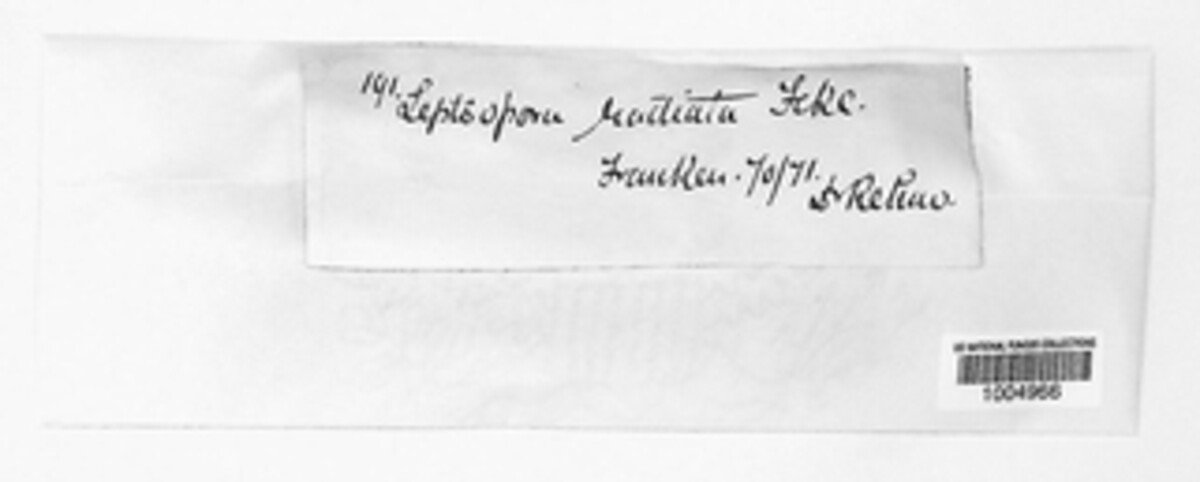 191. Leptospora radiata Fckl.
Franken. 7/0/71.
Dr Rehm
US NATIONAL FUNGUS COLLECTIONS
1004966